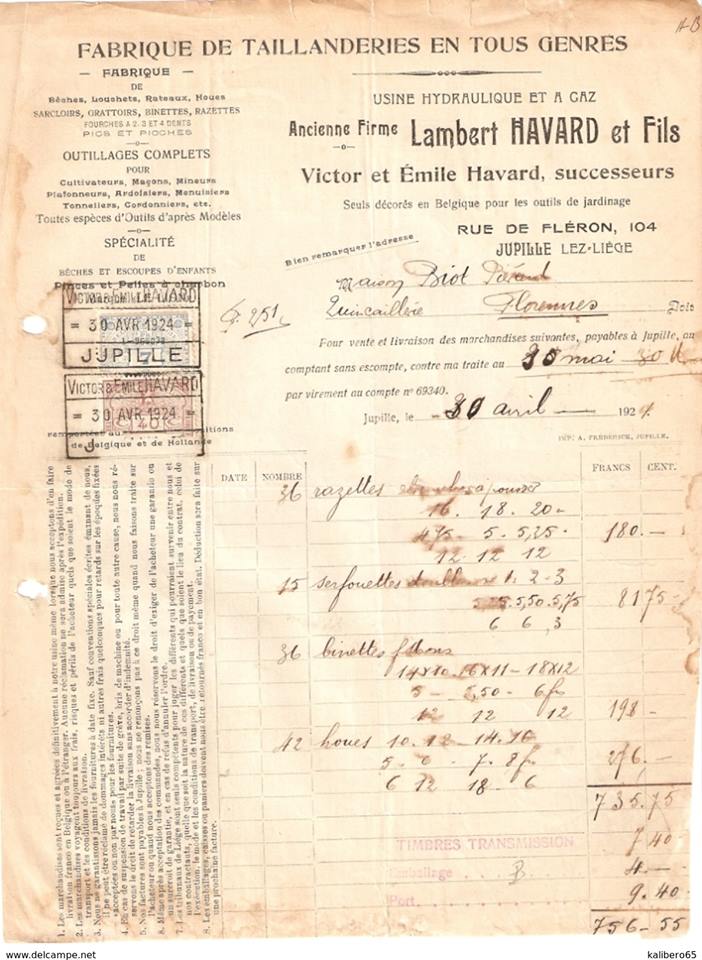 H-B
FABRIQUE DE TAILLANDERIES EN TOUS GENRES
— FABRIQUE —
DE
Bêches, Louchets, Rateaux, Houes
SARCLOIRS, GRATTOIRS, BINETTES, RAZETTES
FOURCHES A 2, 3 ET 4 DENTS
PICS ET PIOCHES
OUTILLAGES COMPLETS
POUR
Cultivateurs, Maçons, Mineurs
Plafonneurs, Ardoisiers, Menuisiers
Tonneliers, Cordonniers, etc.
Toutes espèces d'Outils d'après Modèles
SPÉCIALITÉ
DE
BÊCHES ET ESCOUPES D'ENFANTS
Pinces et Pelles à charbon
VICTOR & EMILE HAVARD
= 30 AVR 1924 =
JUPILLE
VICTOR & EMILE HAVARD
= 30 AVR 1924 =
J
de Belgique et de Hollande
USINE HYDRAULIQUE ET A GAZ
Ancienne Firme Lambert HAVARD et Fils
Victor et Émile Havard, successeurs
Seuls décorés en Belgique pour les outils de jardinage
RUE DE FLÉRON, 104
JUPILLE LEZ-LIÉGE
Bien remarquer l'adresse
Maison Biot Piérard
251 Quincaillerie Florennes Doit
Pour vente et livraison des marchandises suivantes, payables à Jupille, au
comptant sans escompte, contre ma traite au 30 mai
par virement au compte nº 69340.
Jupille, le 30 avril 1924.
IMP. A. FRÉDÉRICK, JUPILLE.
DATE NOMBRE FRANCS CENT.
36 razettes
16. 18. 20
475 - 5 - 5,25. 180.-
12. 12. 12
15 serfouettes 1. 2 - 3
5,50. 5,75 81 75
6 6 3
36 binettes
14x10 16x11 - 18x12
5 - 5,50 - 6fr
12 12 12 198 -
42 houes 10. 12 - 14. 16
5 . 6 . 7 . 8fr 276.-
6 12 18 - 6
735.75
TIMBRES TRANSMISSION 7 40
Emballage . . 4.-
Port 9.40
756-55
1. Les marchandises sont reçues et agréées définitivement à notre usine même lorsque nous acceptons d'en faire
livraison franco en Belgique ou à l'étranger. Aucune réclamation ne sera admise après l'expédition.
2. Les marchandises voyagent toujours aux frais, risques et périls de l'acheteur quels que soient le mode de
transport et les conditions de livraison.
3. Nous ne garantissons jamais les fournitures à date fixe. Sauf conventions spéciales écrites émanant de nous,
il ne peut être réclamé de dommages intérêts ni autres frais quelconques pour retards sur les époques fixées
ou acceptées ou non par nous, pour les fournitures.
4. En cas de suspension de travail par suite de grève, bris de machine ou pour toute autre cause, nous nous ré-
servons le droit de retarder la livraison sans accorder d'indemnité.
5. Nos factures sont payables à Jupille ; nous ne renonçons pas à ce droit même quand nous faisons traite sur
l'acheteur ou quand nous acceptons des remises.
6. Même après acceptation des commandes, nous nous réservons le droit d'exiger de l'acheteur une garantie ou
un surcroît de garantie, et en cas de refus d'annuler l'ordre.
7. Les tribunaux de Liége sont seuls compétents pour juger les différents qui pourraient survenir entre nous et
nos contractants, quelle que soit la nature de ces différents et quels que soient le lieu du contrat, celui de
l'exécution, le mode et les conditions de transport, de livraison ou de payement.
8. Les emballages, caisses ou paniers doivent nous être retournés franco et en bon état. Déduction sera faite sur
une prochaine facture.
www.delcampe.net
kalibero65